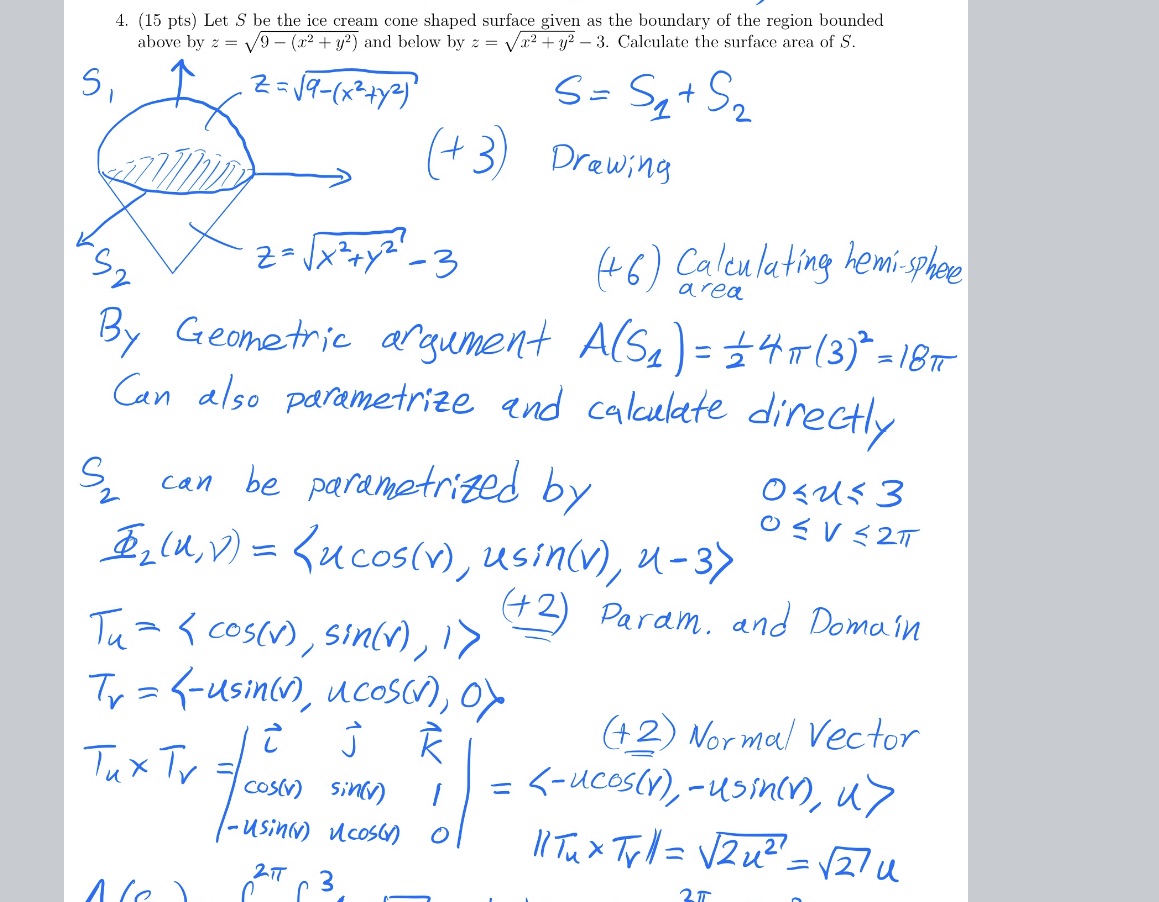 4. (15 pts) Let S be the ice cream cone shaped surface given as the boundary of the region bounded
above by z = √(9 − (x² + y²)) and below by z = √(x² + y²) − 3. Calculate the surface area of S.
S₁
z = √(9-(x²+y²))
S = S₁ + S₂
(+3) Drawing
S₂
z = √(x²+y²) - 3
(+6) Calculating hemi-sphere
area
By Geometric argument A(S₁) = ½ 4π(3)² = 18π
Can also parametrize and calculate directly
S₂ can be parametrized by
0 ≤ u ≤ 3
0 ≤ v ≤ 2π
Φ₂(u,v) = <ucos(v), usin(v), u-3>
(+2) Param. and Domain
Tu = <cos(v), sin(v), 1>
Tv = <-usin(v), ucos(v), 0>
(+2) Normal Vector
Tu × Tv = | i⃗ j⃗ k⃗
cos(v) sin(v) 1
-usin(v) ucos(v) 0 | = <-ucos(v), -usin(v), u>
||Tu × Tv|| = √(2u²) = √2 u
2π 3
2π